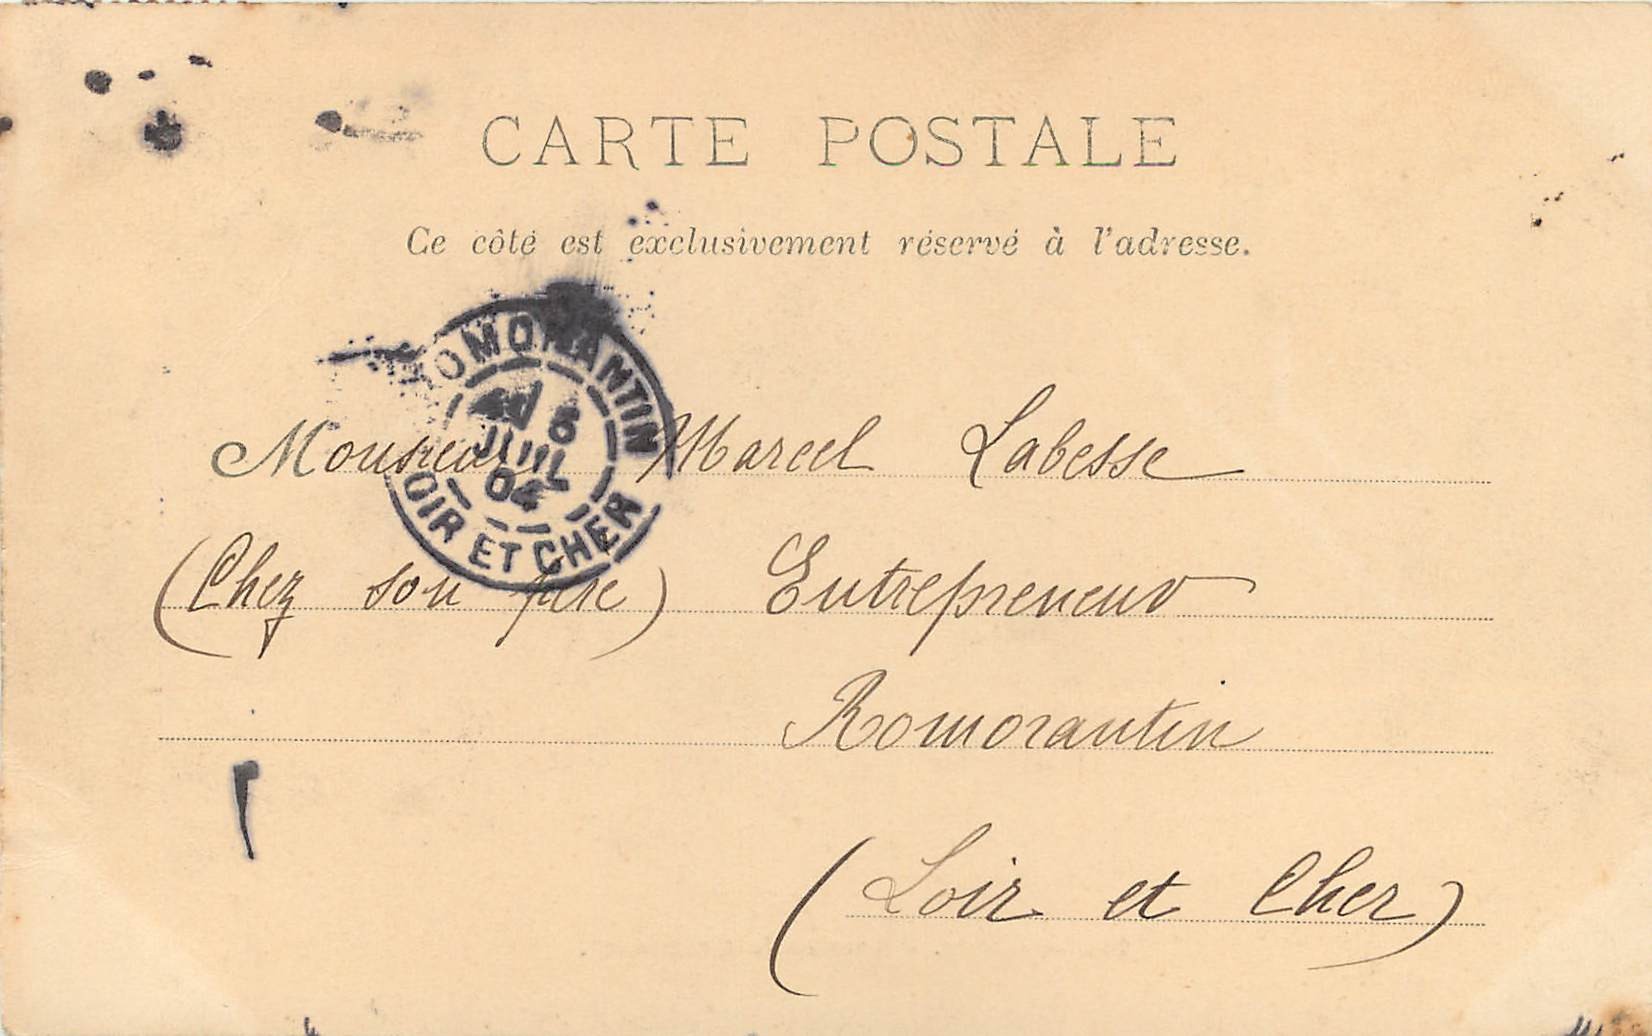 CARTE POSTALE
Ce côté est exclusivement réservé à l'adresse.
ROMORANTIN
6
JUIL
04
LOIR ET CHER
Monsieur Marcel Labesse
(Chez son père) Entrepreneur
Romorantin
(Loir et Cher)